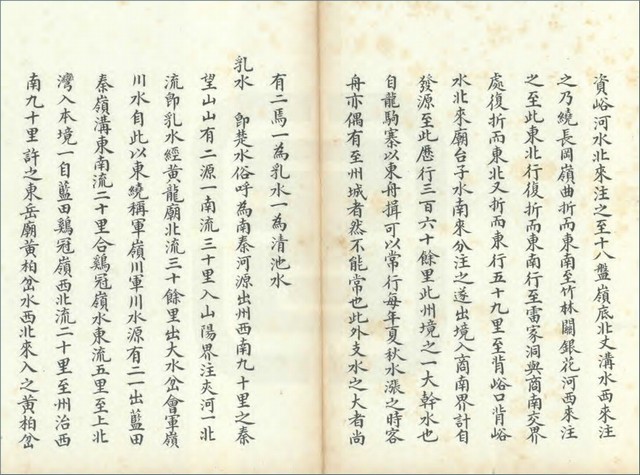 資峪河水北來注之至十八盤嶺底北丈溝水西來注
之乃繞長岡嶺曲折而東南至竹林關銀花河西來注
之至此東北行復折而東南行至雷家洞與商南交界
處復折而東北又折而東行五十九里至背峪口背峪
水北來廟台子水南來分注之遂出境入商南界計自
發源至此歷行三百六十餘里此州境之一大幹水也
自龍駒寨以東舟揖可以常行每年夏秋水漲之時客
舟亦偶有至州城者然不能常也此外支水之大者尚
有二焉一為乳水一為清池水
乳水 即楚水俗呼為南秦河源出州西南九十里之秦
望山山有二源一南流三十里入山陽界注夾河一北
流即乳水經黃龍廟北流三十餘里出大水岔會軍嶺
川水自此以東繞稱軍嶺川軍川水源有二一出藍田
秦嶺溝東南流二十里合鷄冠嶺水東流五里至上北
灣入本境一自藍田鷄冠嶺西北流二十里至州治西
南九十里許之東岳廟黃柏岔水西北來入之黃柏岔